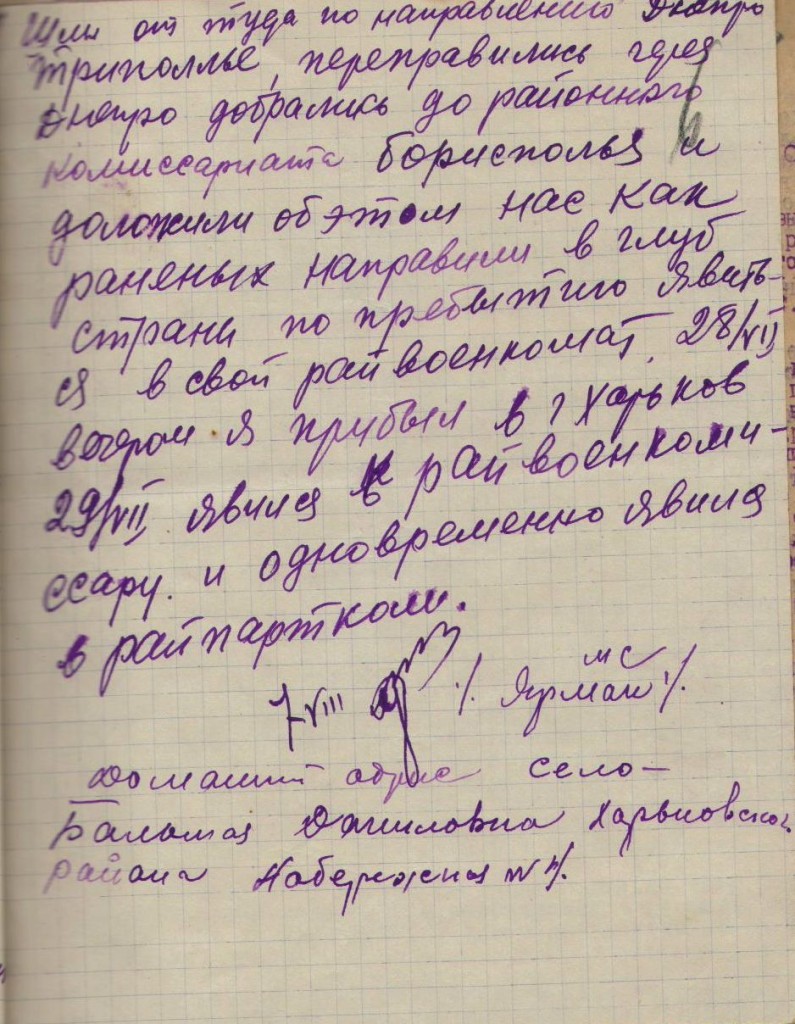 Шли от туда по направлению Днепро
Триполлье, переправились через
Днепро добрались до районного
комиссариата Борисполья и
доложили об этом нас как
раненых направили в глуб
страны по пребытию явить-
ся в свой райвоенкомат. 28/VII
вечером я прибыл в г Харьков
29/VII явился к райвоенкоми-
ссару. и одновременно явился
в райпартком.
7 VIII ./. Ярмак МС ./.
Домашний адрес село-
Большая Даниловка Харьковского
района Набережная №